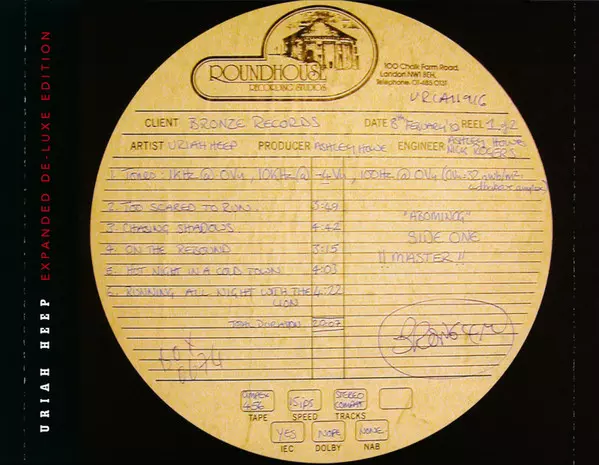 URIAH HEEP EXPANDED DE-LUXE EDITION
ROUNDHOUSE
RECORDING STUDIOS
100 Chalk Farm Road,
London NW1 8EH,
Telephone: 01-485 0131
CLIENT BRONZE RECORDS DATE 8th REEL 1 of 2
ARTIST URIAH HEEP PRODUCER ASHLEY HOWE ENGINEER ASHLEY HOWE NICK ROGERS
1. TONES: 1KHz @ 0Vu, 10KHz @ -4Vu, 100Hz @ 0Vu
2. TOO SCARED TO RUN. 3:49
"ABOMINOG"
3. CHASING SHADOWS. 4:42
SIDE ONE
4. ON THE REBOUND 3:15
!! MASTER !!
5. HOT NIGHT IN A COLD TOWN 4:03
6. RUNNING ALL NIGHT WITH THE LION 4:22
TOTAL DURATION
AMPEX 456 15ips STEREO
TAPE SPEED TRACKS
YES NOPE NONE
IEC DOLBY NAB